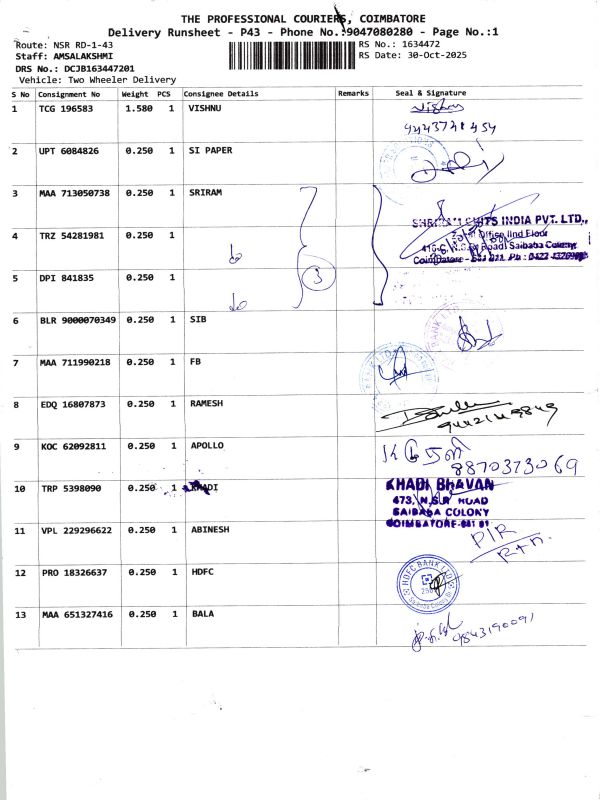 THE PROFESSIONAL COURIERS, COIMBATORE
Delivery Runsheet - P43 - Phone No.:9047080280 - Page No.:1
Route: NSR RD-1-43 RS No.: 1634472
Staff: AMSALAKSHMI RS Date: 30-Oct-2025
DRS No.: DCJB163447201
Vehicle: Two Wheeler Delivery
S No Consignment No Weight PCS Consignee Details Remarks Seal & Signature
1 TCG 196583 1.580 1 VISHNU
2 UPT 6084826 0.250 1 SI PAPER
3 MAA 713050738 0.250 1 SRIRAM
INDIA PVT. LTD.,
4 TRZ 54281981 0.250 1
IInd Floor
Saibaba Colony
5 DPI 841835 0.250 1 3
6 BLR 9000070349 0.250 1 SIB
7 MAA 711990218 0.250 1 FB
8 EDQ 16807873 0.250 1 RAMESH
9442149849
9 KOC 62092811 0.250 1 APOLLO
8870373069
10 TRP 5398090 0.250 1 KHADI
KHADI BHAVAN
473, N.S.R ROAD
SAIBABA COLONY
11 VPL 229296622 0.250 1 ABINESH
12 PRO 18326637 0.250 1 HDFC
HDFC BANK LTD
13 MAA 651327416 0.250 1 BALA
9843190091